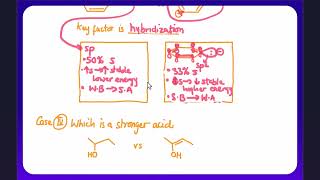 Key factor is hybridization
sp
• 50% s
• ↑s → ↑ stable
lower energy
• W.B → S.A
sp²
• 33% s
• ↓s → ↓ stable
higher energy
• S.B → W.A
Case IV Which is a stronger acid
HO
vs
OH